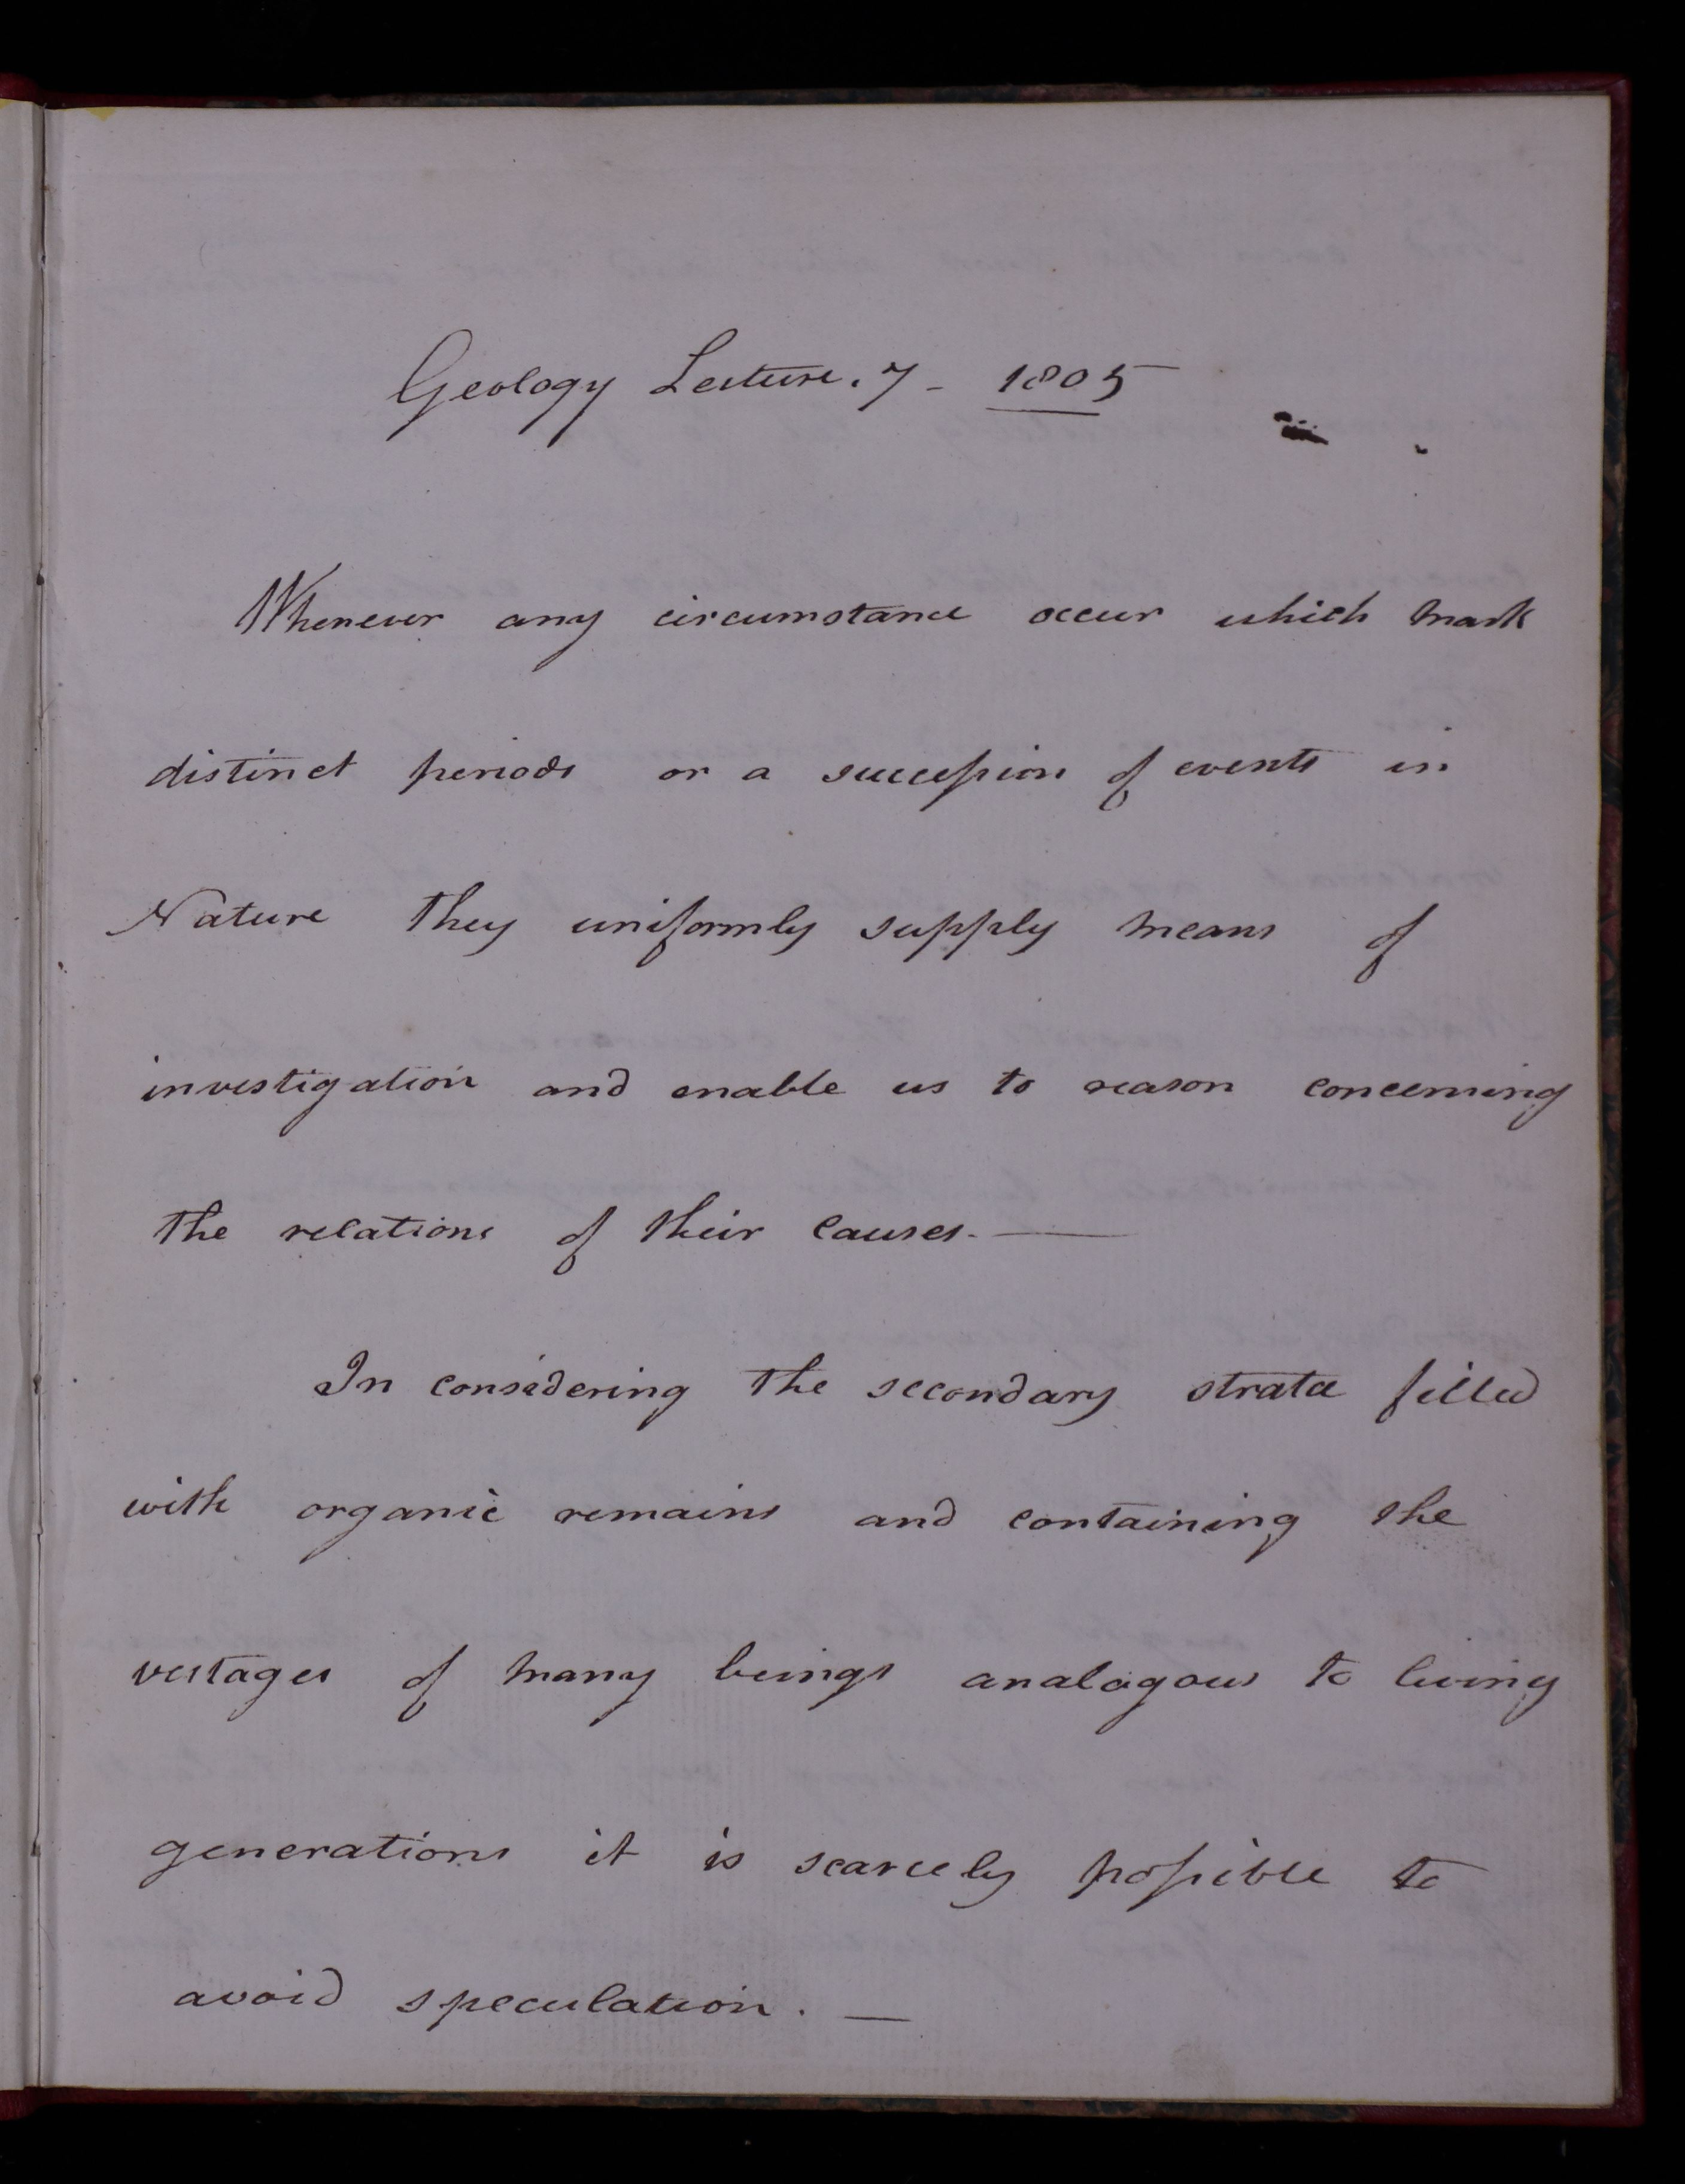 Geology Lecture. 7 - 1805
Whenever any circumstance occur which mark
distinct periods or a succession of events in
Nature they uniformly supply means of
investigation and enable us to reason concerning
the relations of their causes. —
In considering the secondary strata filled
with organic remains and containing the
vestages of many beings analagous to living
generations it is scarcely possible to
avoid speculation. —